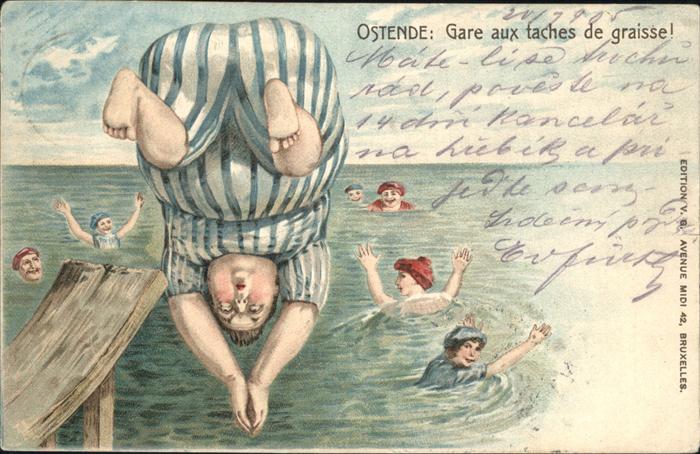 20/7 905
OSTENDE: Gare aux taches de graisse!
Máte-li se trochu
rád, pověste na
14 dní kancelář
na hřebík a při
jeďte sem.
Srdečný
EDITION V. G. AVENUE MIDI 42, BRUXELLES.